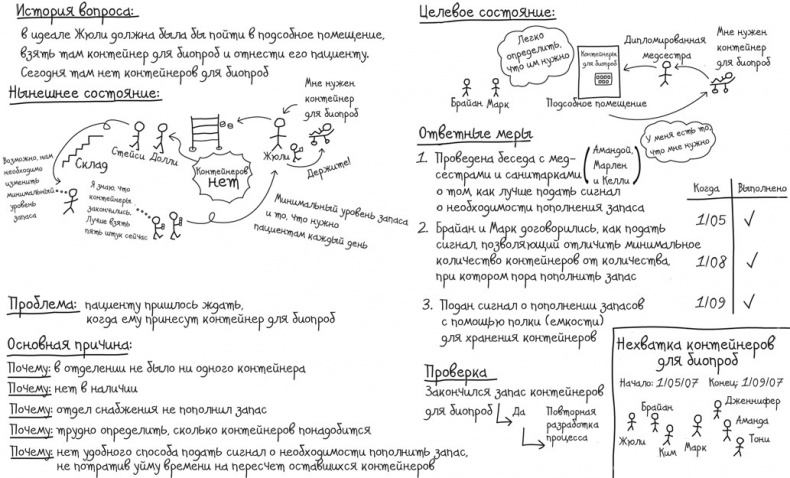 История вопроса:
в идеале Жюли должна была бы пойти в подсобное помещение,
взять там контейнер для биопроб и отнести его пациенту.
Сегодня там нет контейнеров для биопроб
Нынешнее состояние:
Мне нужен
контейнер
для биопроб
Возможно, нам
необходимо
изменить
минимальный
уровень
запаса
Склад
Стейси Долли
Контейнеров
нет
Жюли
Держите!
Я знаю, что
контейнеры
закончились.
Лучше взять
пять штук сейчас
Минимальный уровень запаса
и то, что нужно
пациентам каждый день
Проблема: пациенту пришлось ждать,
когда ему принесут контейнер для биопроб
Основная причина:
Почему: в отделении не было ни одного контейнера
Почему: нет в наличии
Почему: отдел снабжения не пополнил запас
Почему: трудно определить, сколько контейнеров понадобится
Почему: нет удобного способа подать сигнал о необходимости пополнить запас,
не потратив уйму времени на пересчет оставшихся контейнеров
Целевое состояние:
Легко
определить,
что им нужно
Брайан Марк
Контейнеры
для биопроб
Подсобное помещение
Дипломированная
медсестра
Мне нужен
контейнер
для биопроб
У меня есть то,
что мне нужно
Ответные меры
1. Проведена беседа с мед-
сестрами и санитарками
(Амандой,
Марлен
и Келли)
о том как лучше подать сигнал
о необходимости пополнения запаса
2. Брайан и Марк договорились, как подать
сигнал, позволяющий отличить минимальное
количество контейнеров от количества,
при котором пора пополнить запас
3. Подан сигнал о пополнении запасов
с помощью полки (емкости)
для хранения контейнеров
Когда Выполнено
1/05 ✓
1/08 ✓
1/09 ✓
Проверка
Закончился запас контейнеров
для биопроб
Да
Повторная
разработка
процесса
Нехватка контейнеров
для биопроб
Начало: 1/05/07 Конец: 1/09/07
Жюли
Брайан
Ким
Марк
Дженнифер
Аманда
Тони